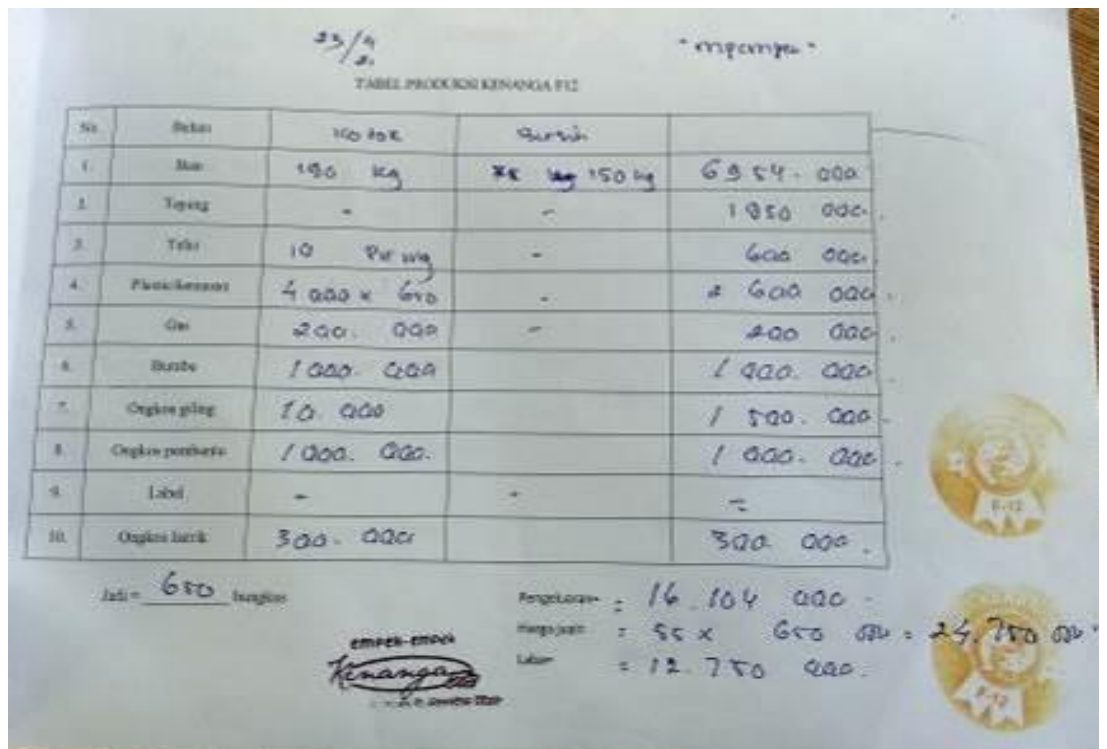 23/4
"mpempe"
TABEL PRODUKSI KENANGA F12
No. Bahan Kotor Bersih
1. Ikan 190 Kg 150 kg 6954.000
2. Tepung - - 1950 000.
3. Telur 10 - 600 000.
4. Plastic/kemasan 4000 x 650 - 2 600 000.
5. Gas 200.000 - 200 000.
6. Bumbu 1000.000 1 000.000.
7. Ongkos giling 10.000 1 500.000
8. Ongkos pembantu 1000.000. 1 000.000.
9. Label - - -
10. Ongkos listrik 300.000 300 000.
Jadi = 650 bungkus
Pengeluaran = 16.104 000
Harga jual = 55 x 650 = 24.750
Laba = 12.750 000.
EMPEK-EMPEK
Kenanga
F-12
F-12